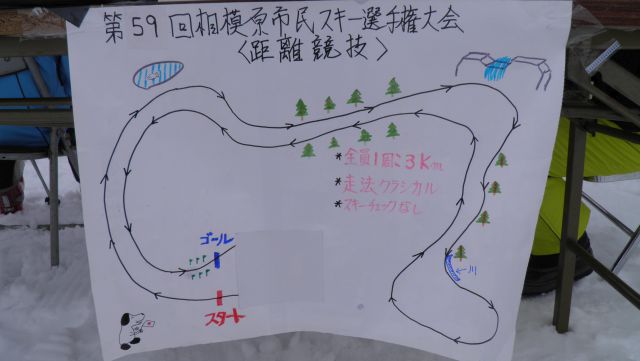 第59回相模原市民スキー選手権大会
〈距離競技〉
*全員1周こ3Km
*走法クラシカル
*スキーチェックなし
ゴール
←川
スタート